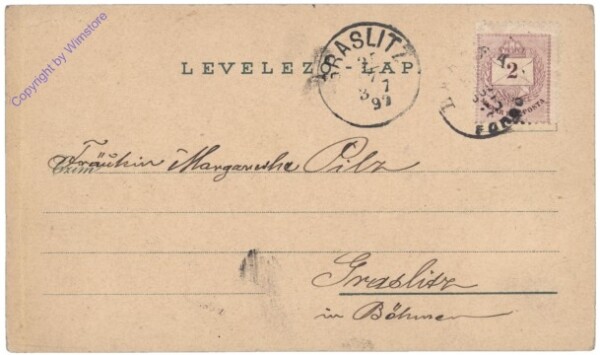 Copyright by Wimstore
LEVELEZ - LAP
GRASLITZ
97
2
POSTA
Fräulein Margarethe Pilz
Graslitz
in Böhmen